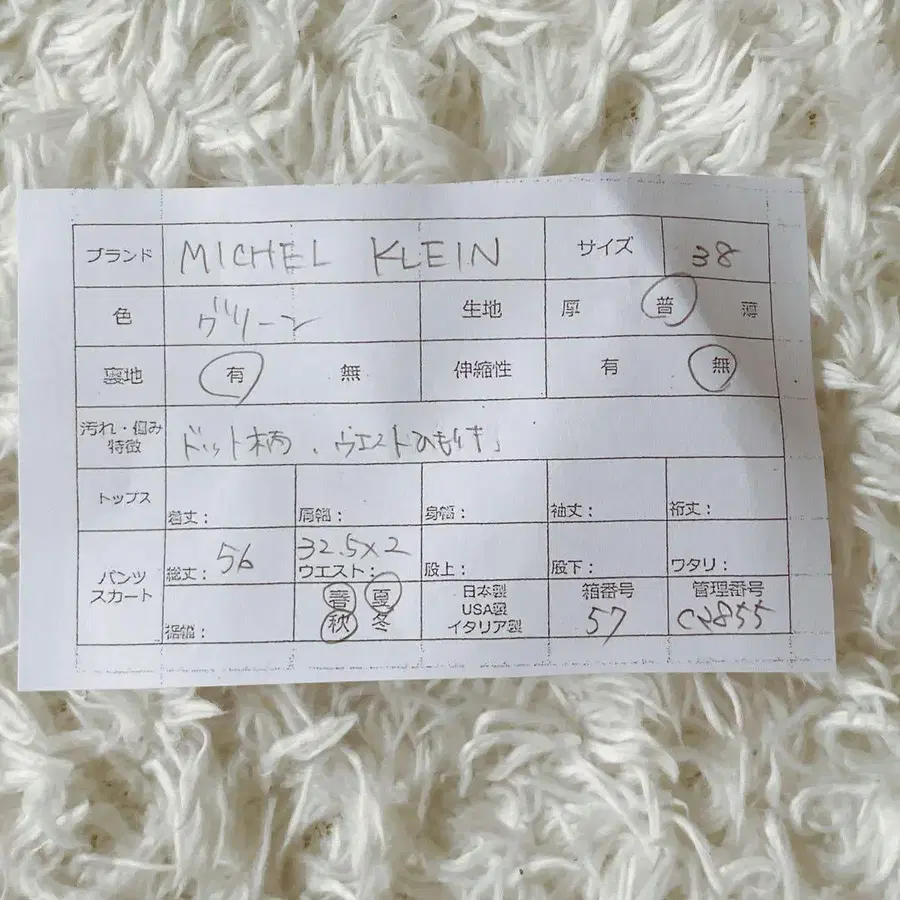 ブランド MICHEL KLEIN サイズ 38
色 グリーン 生地 厚 普 薄
裏地 有 無 伸縮性 有 無
汚れ・傷み
特徴 ドット柄、ウエストひも付き
トップス 着丈: 肩幅: 身幅: 袖丈: 裄丈:
パンツ
スカート 総丈: 56 32.5×2
ウエスト: 股上: 股下: ワタリ:
裾幅: 春 夏
秋 冬
日本製
USA製
イタリア製
箱番号
57
管理番号
C2855